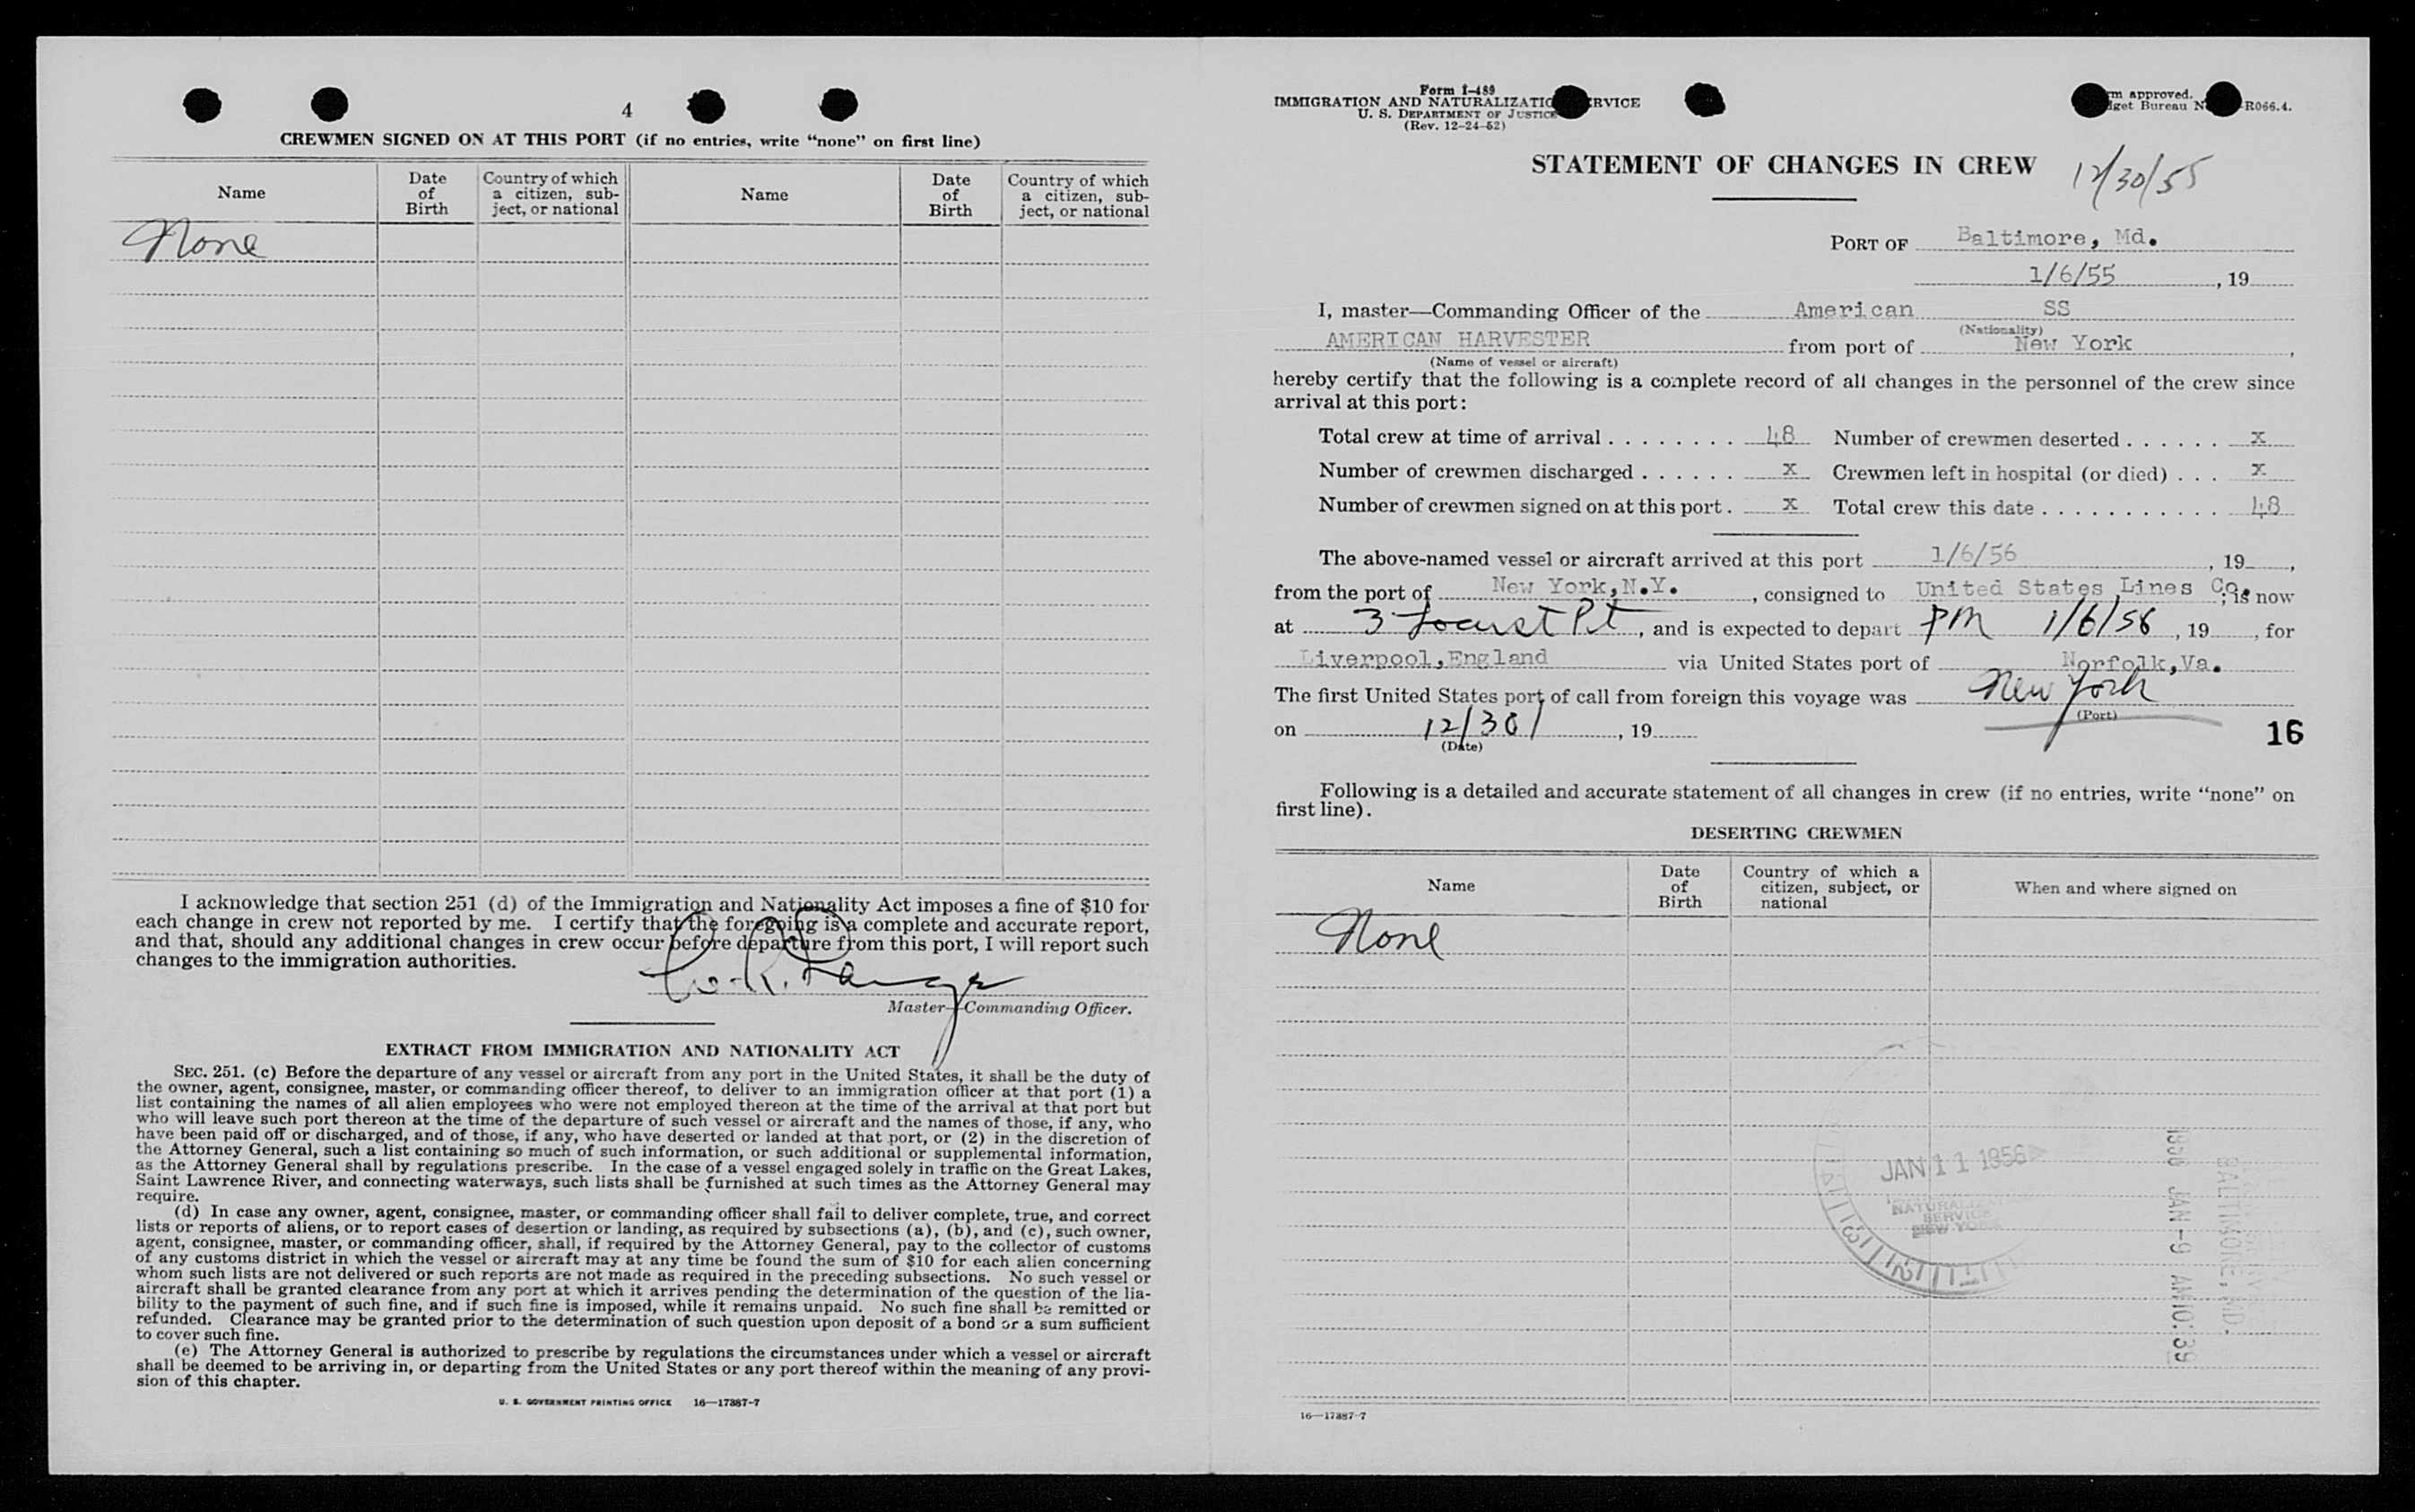 4
CREWMEN SIGNED ON AT THIS PORT (if no entries, write "none" on first line)
Name
Date of Birth
Country of which a citizen, subject, or national
Name
Date of Birth
Country of which a citizen, subject, or national
None
I acknowledge that section 251 (d) of the Immigration and Nationality Act imposes a fine of $10 for
each change in crew not reported by me. I certify that the foregoing is a complete and accurate report,
and that, should any additional changes in crew occur before departure from this port, I will report such
changes to the immigration authorities.
Master—Commanding Officer.
EXTRACT FROM IMMIGRATION AND NATIONALITY ACT
SEC. 251. (c) Before the departure of any vessel or aircraft from any port in the United States, it shall be the duty of
the owner, agent, consignee, master, or commanding officer thereof, to deliver to an immigration officer at that port (1) a
list containing the names of all alien employees who were not employed thereon at the time of the arrival at that port but
who will leave such port thereon at the time of the departure of such vessel or aircraft and the names of those, if any, who
have been paid off or discharged, and of those, if any, who have deserted or landed at that port, or (2) in the discretion of
the Attorney General, such a list containing so much of such information, or such additional or supplemental information,
as the Attorney General shall by regulations prescribe. In the case of a vessel engaged solely in traffic on the Great Lakes,
Saint Lawrence River, and connecting waterways, such lists shall be furnished at such times as the Attorney General may
require.
(d) In case any owner, agent, consignee, master, or commanding officer shall fail to deliver complete, true, and correct
lists or reports of aliens, or to report cases of desertion or landing, as required by subsections (a), (b), and (c), such owner,
agent, consignee, master, or commanding officer, shall, if required by the Attorney General, pay to the collector of customs
of any customs district in which the vessel or aircraft may at any time be found the sum of $10 for each alien concerning
whom such lists are not delivered or such reports are not made as required in the preceding subsections. No such vessel or
aircraft shall be granted clearance from any port at which it arrives pending the determination of the question of the lia-
bility to the payment of such fine, and if such fine is imposed, while it remains unpaid. No such fine shall be remitted or
refunded. Clearance may be granted prior to the determination of such question upon deposit of a bond or a sum sufficient
to cover such fine.
(e) The Attorney General is authorized to prescribe by regulations the circumstances under which a vessel or aircraft
shall be deemed to be arriving in, or departing from the United States or any port thereof within the meaning of any provi-
sion of this chapter.
U. S. GOVERNMENT PRINTING OFFICE 16—17387-7
Form I-489
IMMIGRATION AND NATURALIZATIO RVICE
U. S. DEPARTMENT OF JUSTICE
(Rev. 12-24-52)
m approved.
get Bureau N R066.4.
STATEMENT OF CHANGES IN CREW
12/30/55
PORT OF Baltimore, Md.
1/6/55, 19
I, master—Commanding Officer of the American SS
(Nationality)
AMERICAN HARVESTER from port of New York,
(Name of vessel or aircraft)
hereby certify that the following is a complete record of all changes in the personnel of the crew since
arrival at this port:
Total crew at time of arrival . . . . . . . . 48 Number of crewmen deserted . . . . . . x
Number of crewmen discharged . . . . . . x Crewmen left in hospital (or died) . . . x
Number of crewmen signed on at this port . x Total crew this date . . . . . . . . . . . 48
The above-named vessel or aircraft arrived at this port 1/6/56, 19,
from the port of New York,N.Y., consigned to United States Lines Co.; is now
at 3 Locust Pt, and is expected to depart PM 1/6/56, 19, for
Liverpool,England via United States port of Norfolk,Va.
The first United States port of call from foreign this voyage was New York
(Port)
on 12/30/, 19
(Date)
16
Following is a detailed and accurate statement of all changes in crew (if no entries, write "none" on
first line).
DESERTING CREWMEN
Name
Date of Birth
Country of which a citizen, subject, or national
When and where signed on
None
JAN 11 1956
NATURALIZATION
SERVICE
NEW YORK
1956 JAN-9 AM 10:39
BALTIMORE, MD.
16—17387-7